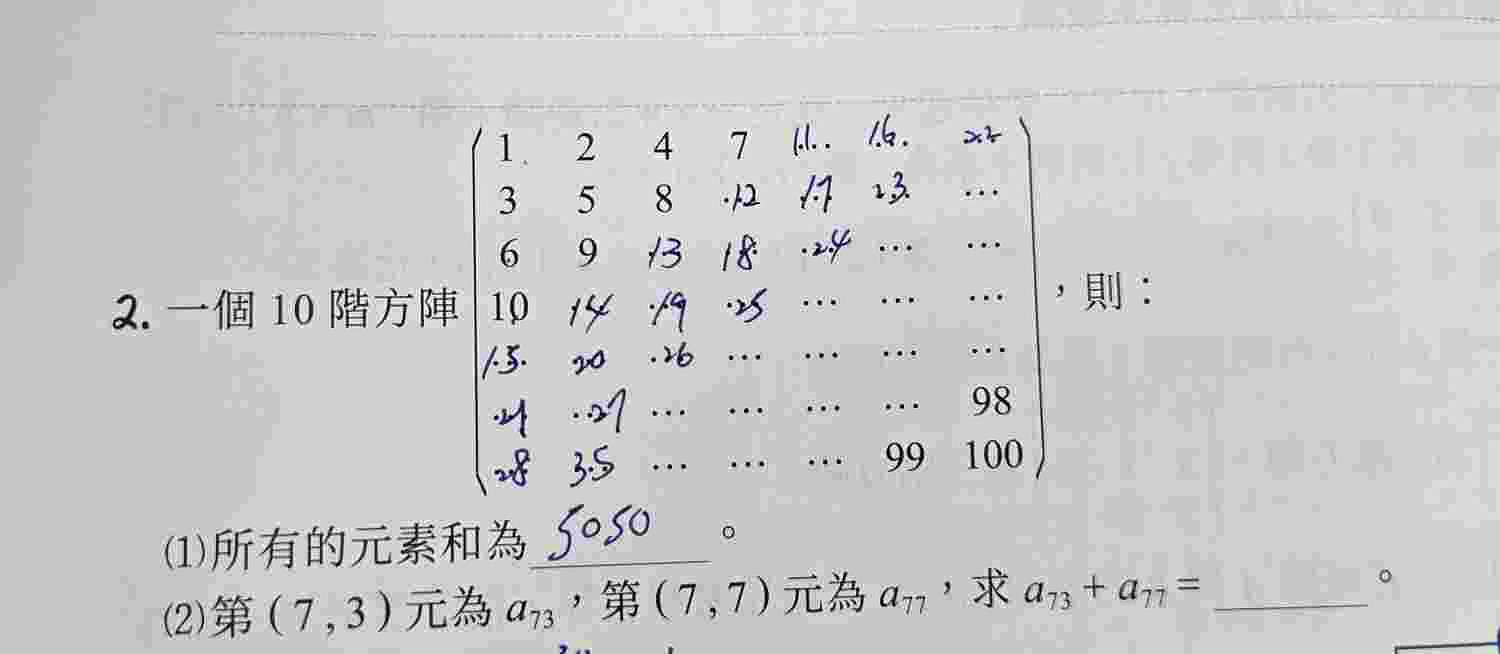 1 2 4 7 11 16 22
3 5 8 12 17 23 ...
6 9 13 18 24 ... ...
2. 一個 10 階方陣 10 14 19 25 ... ... ... ,則:
15 20 26 ... ... ... ...
21 27 ... ... ... ... 98
28 35 ... ... ... 99 100
(1)所有的元素和為 5050 。
(2)第 (7,3) 元為 a₇₃,第 (7,7) 元為 a₇₇,求 a₇₃ + a₇₇ = ______ 。